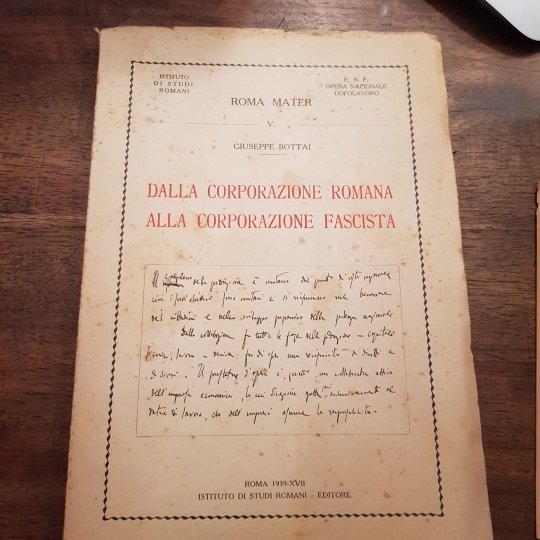 ISTITUTO
DI STUDI
ROMANI
P. N. F.
OPERA NAZIONALE
DOPOLAVORO
ROMA MATER
V.
GIUSEPPE BOTTAI
DALLA CORPORAZIONE ROMANA
ALLA CORPORAZIONE FASCISTA
Il complesso della produzione è unitario dal punto di vista nazionale;
i suoi obiettivi sono unitari e si riassumono nel benessere
dei cittadini e nello sviluppo della potenza nazionale.
Dalla collaborazione fra tutte le forze della produzione – capitale,
tecnica, lavoro – deriva fra di esse una reciprocità di diritti e
di doveri. Il prestatore d'opera è, quindi, un collaboratore attivo
dell'impresa economica, la cui direzione spetta al
datore di lavoro, che dell'impresa assume la responsabilità.
ROMA 1939-XVII
ISTITUTO DI STUDI ROMANI - EDITORE